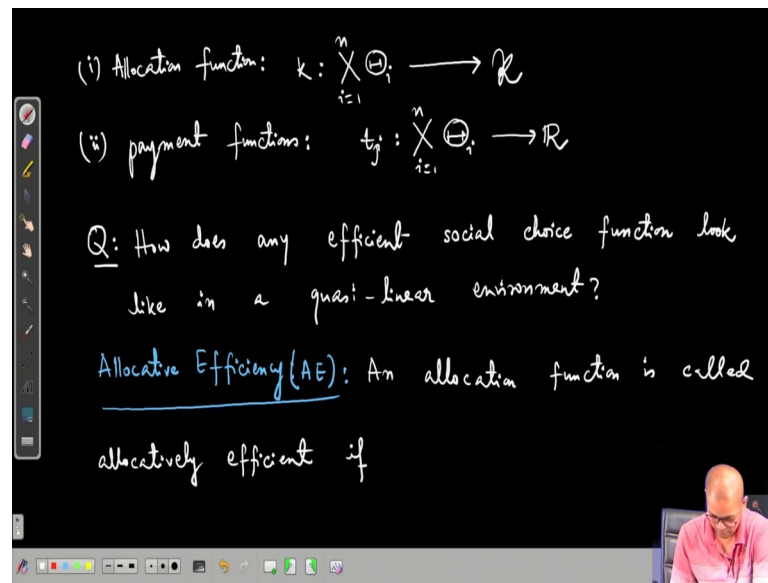 (i) Allocation function: k: n X i=1 Θi ⟶ 𝒦
(ii) payment functions: tj: n X i=1 Θi ⟶ ℝ
Q: How does any efficient social choice function look
like in a quasi-linear environment?
Allocative Efficiency (AE): An allocation function is called
allocatively efficient if